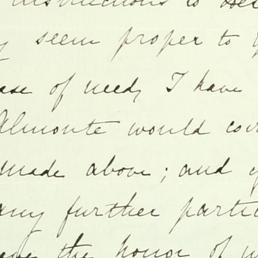 instructions to
seem proper to
of need, I have
Almonte would
made above; and
any further
the honor of